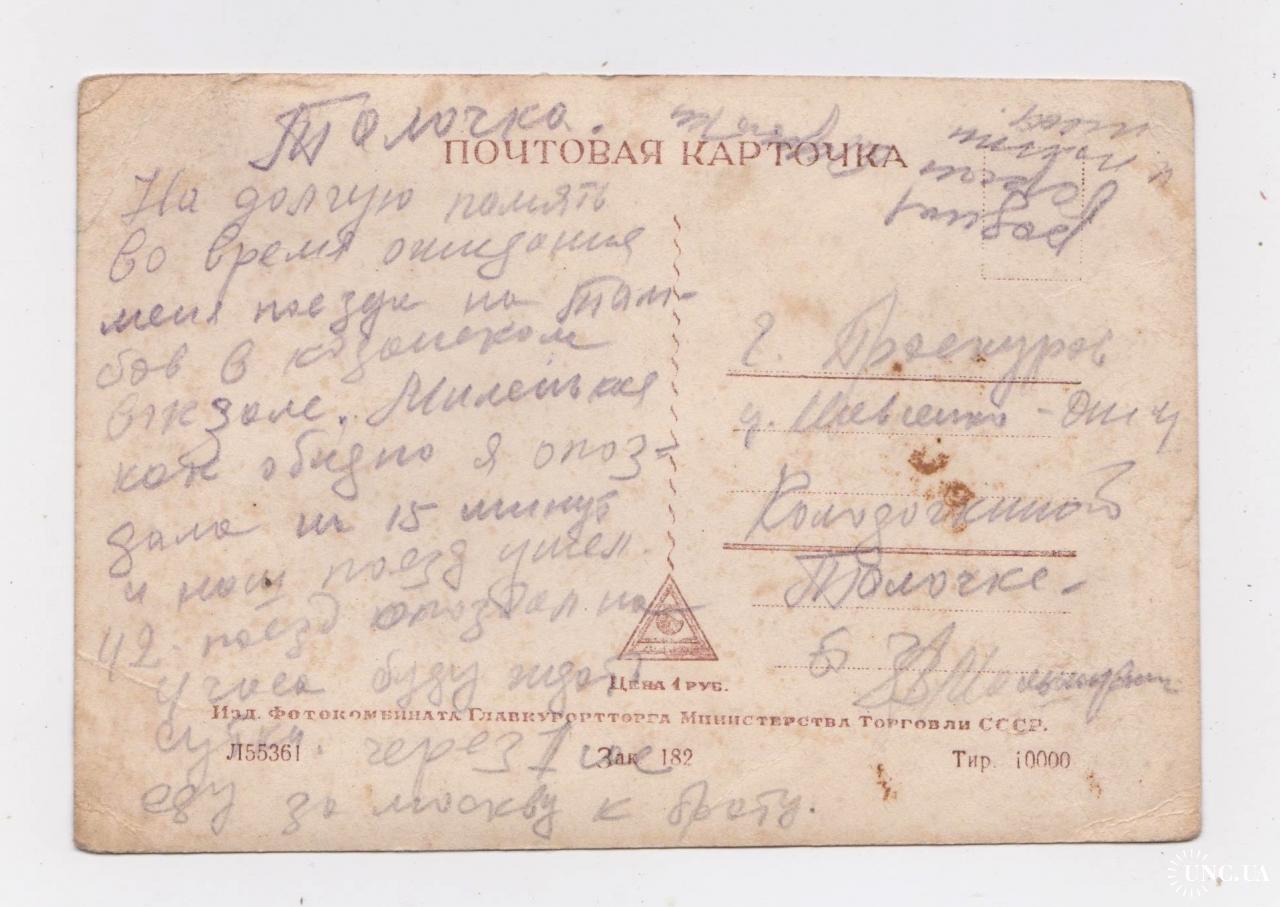 Толочка.
ПОЧТОВАЯ КАРТОЧКА
На долгую память
во время ожидания
меня поезда на Там-
бов в казанском
вжзале. Миленькая
как обидно я опоз-
дала на 15 минут
и наш поезд ушел.
42. поезд опоздал на
4 часа буду ждать
сутки. через 1 час
еду за москву к брату.
г. Проскуров
Колодочкиной
Толочке-
Б
ЦЕНА 1 РУБ.
ИЗД. ФОТОКОМБИНАТА ГЛАВКУРОРТТОРГА МИНИСТЕРСТВА ТОРГОВЛИ СССР.
Л55361 Зак 182 Тир. 10000
UNC.UA